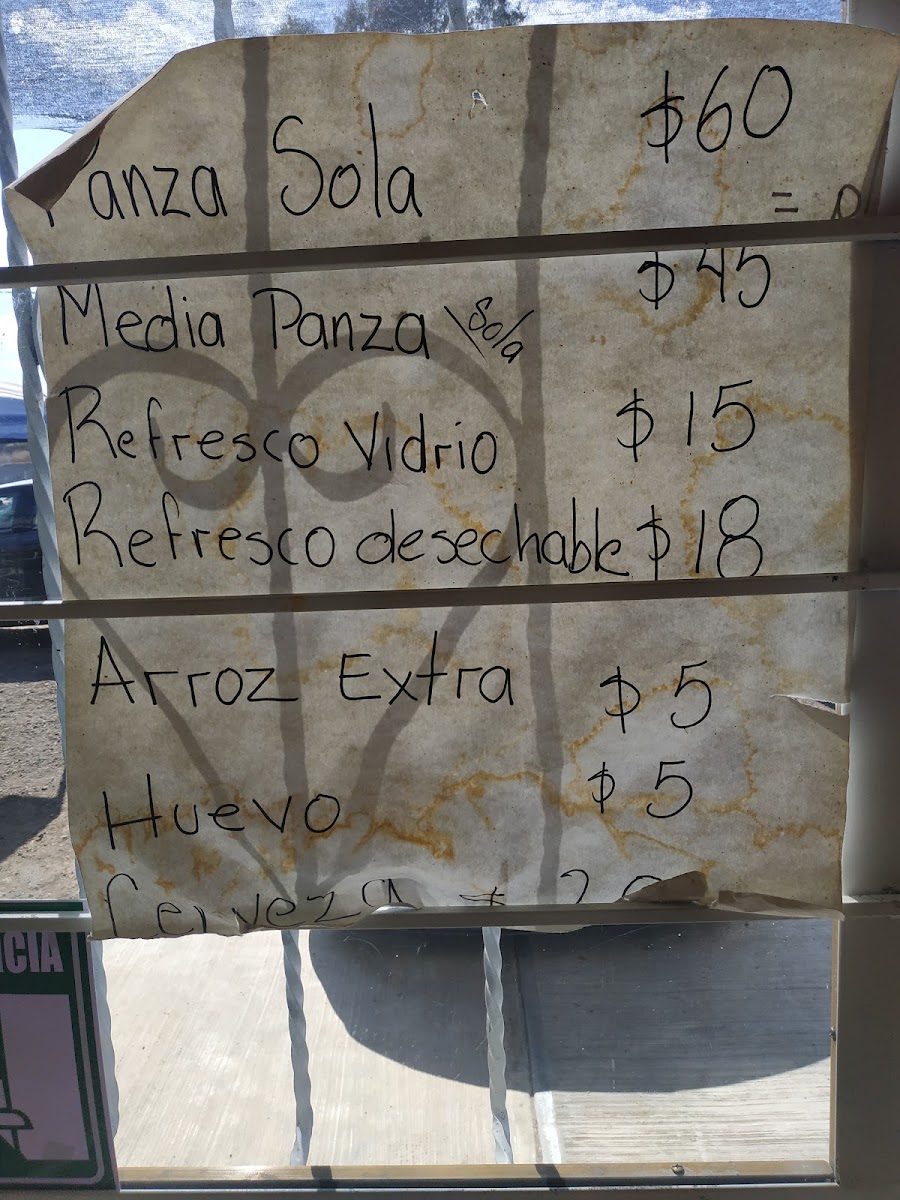 Panza Sola $60
Media Panza Sola $45
Refresco Vidrio $15
Refresco desechable $18
Arroz Extra $5
Huevo $5
Cerveza $
CIA